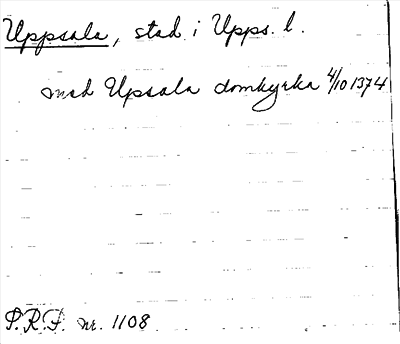 Uppsala, stad i Upps. l.
med Upsala domkyrka 4/10 1374
S.R.P. nr. 1108